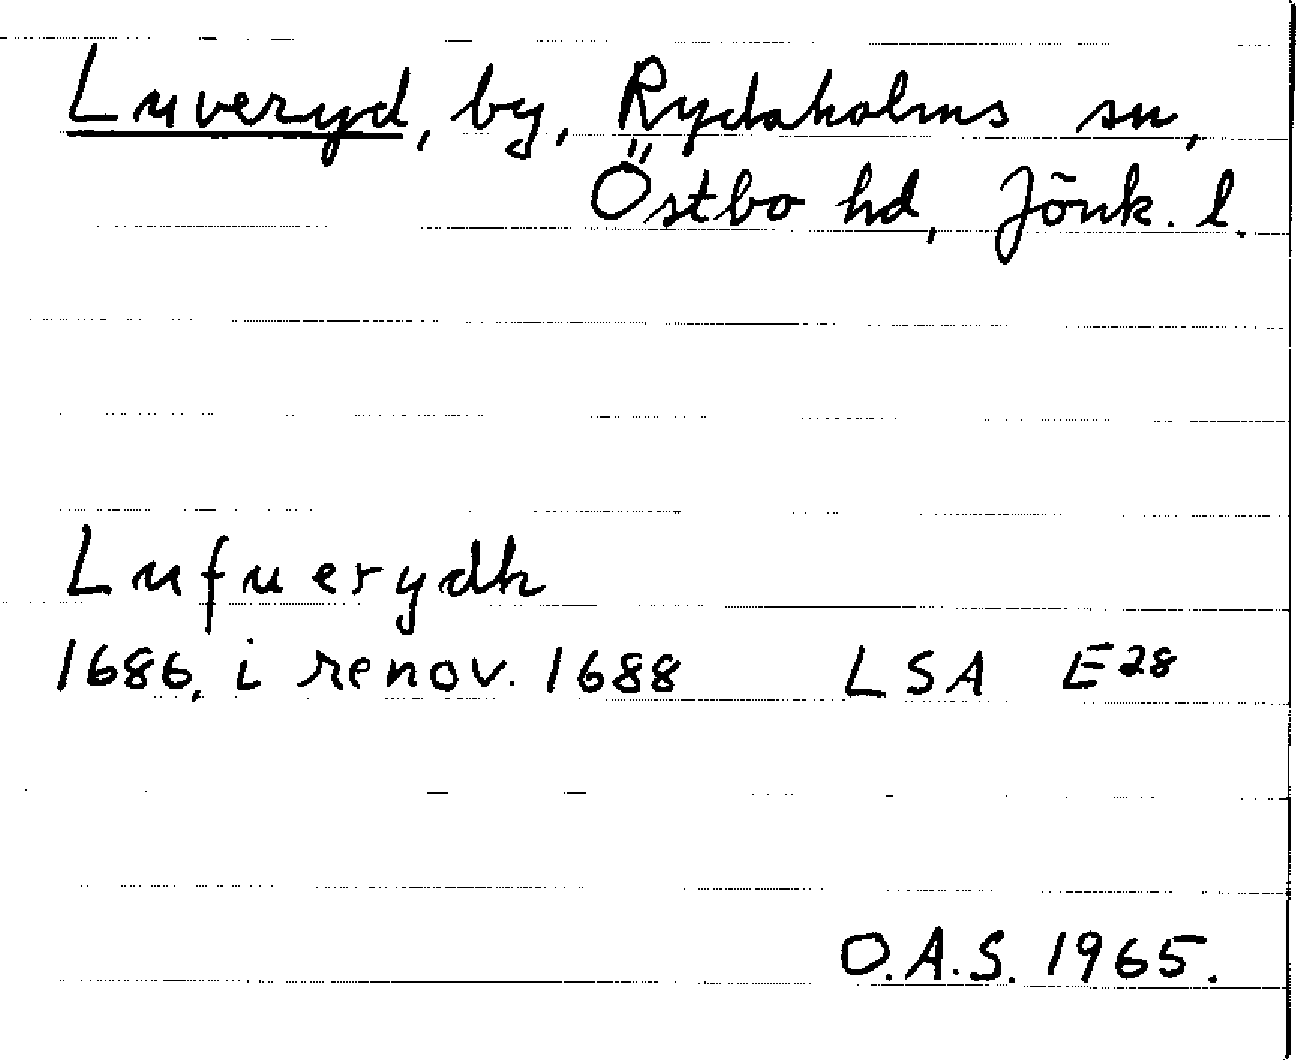 Luveryd, by, Rydaholms sn,
Östbo hd, Jönk. l.
Lufuerydh
1686, i renov. 1688 LSA E28
O.A.S. 1965.